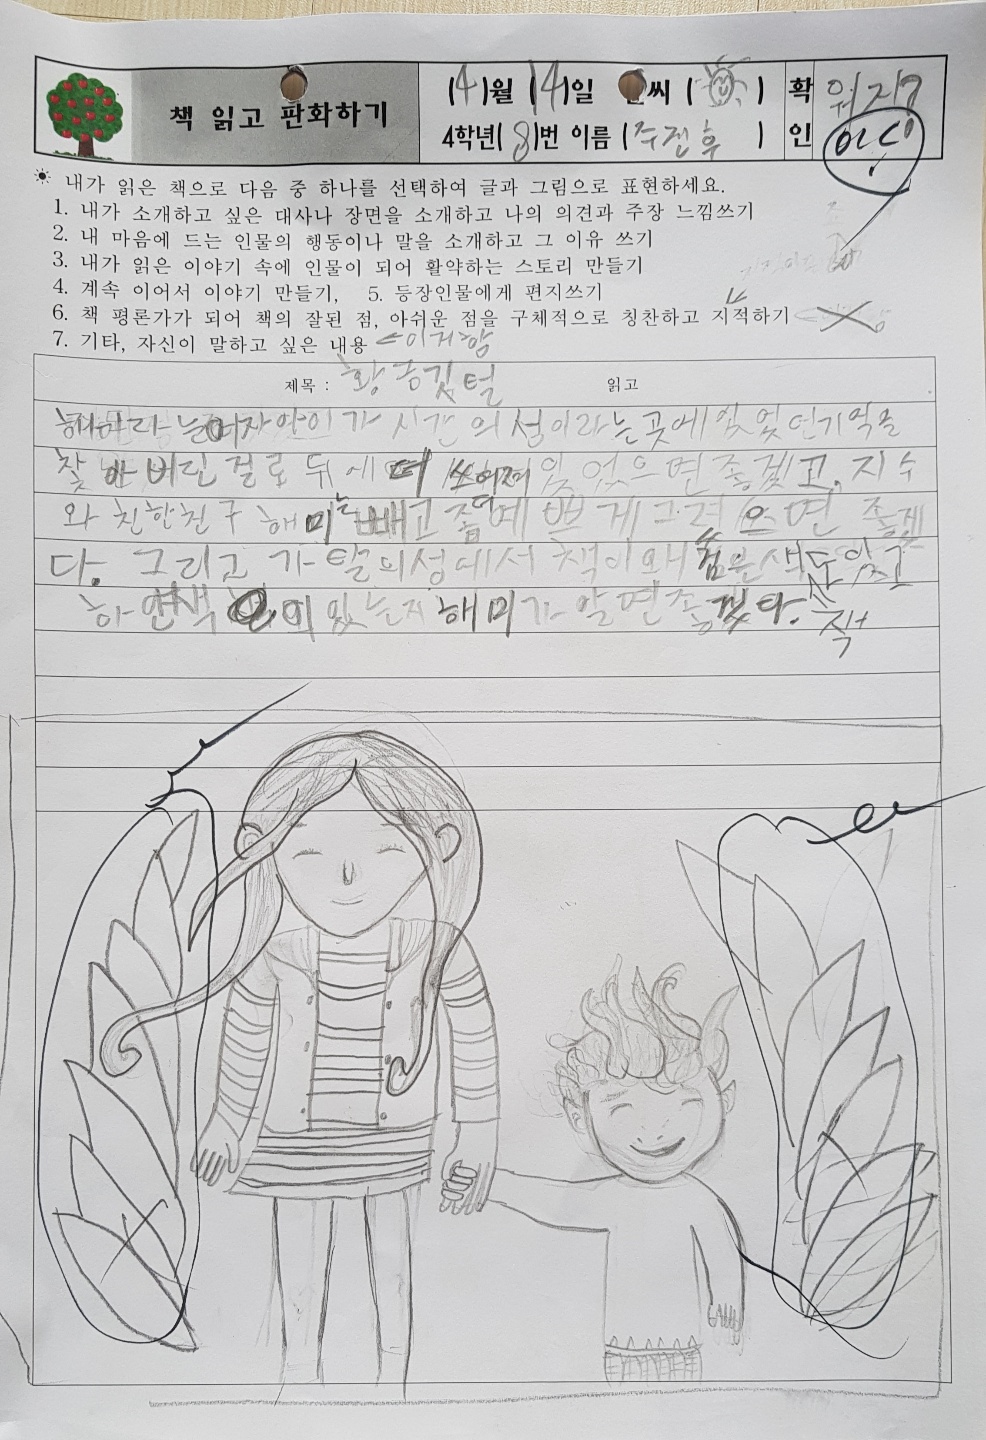 책 읽고 판화하기
(4)월 (4)일 씨 ( ) 확
4학년(8)번 이름 (주전후 ) 인
내가 읽은 책으로 다음 중 하나를 선택하여 글과 그림으로 표현하세요.
1. 내가 소개하고 싶은 대사나 장면을 소개하고 나의 의견과 주장 느낌쓰기
2. 내 마음에 드는 인물의 행동이나 말을 소개하고 그 이유 쓰기
3. 내가 읽은 이야기 속에 인물이 되어 활약하는 스토리 만들기
4. 계속 이어서 이야기 만들기, 5. 등장인물에게 편지쓰기
6. 책 평론가가 되어 책의 잘된 점, 아쉬운 점을 구체적으로 칭찬하고 지적하기
7. 기타, 자신이 말하고 싶은 내용 <이거함
제목 : 황금깃털 읽고
해미라는 여자아이가 시간의 성이라는 곳에 있었던 기억을
찾아버린 걸로 뒤에 더 쓰여져 있었으면 좋겠고, 지수
와 친한친구 해미는 빼고 좀더 예쁘게 그려 쓰면 좋겠
다. 그리고 가탈의성에서 책이 왜 검은색 도 있고
하얀색 도 있는지 해미가 알면좋겠다.